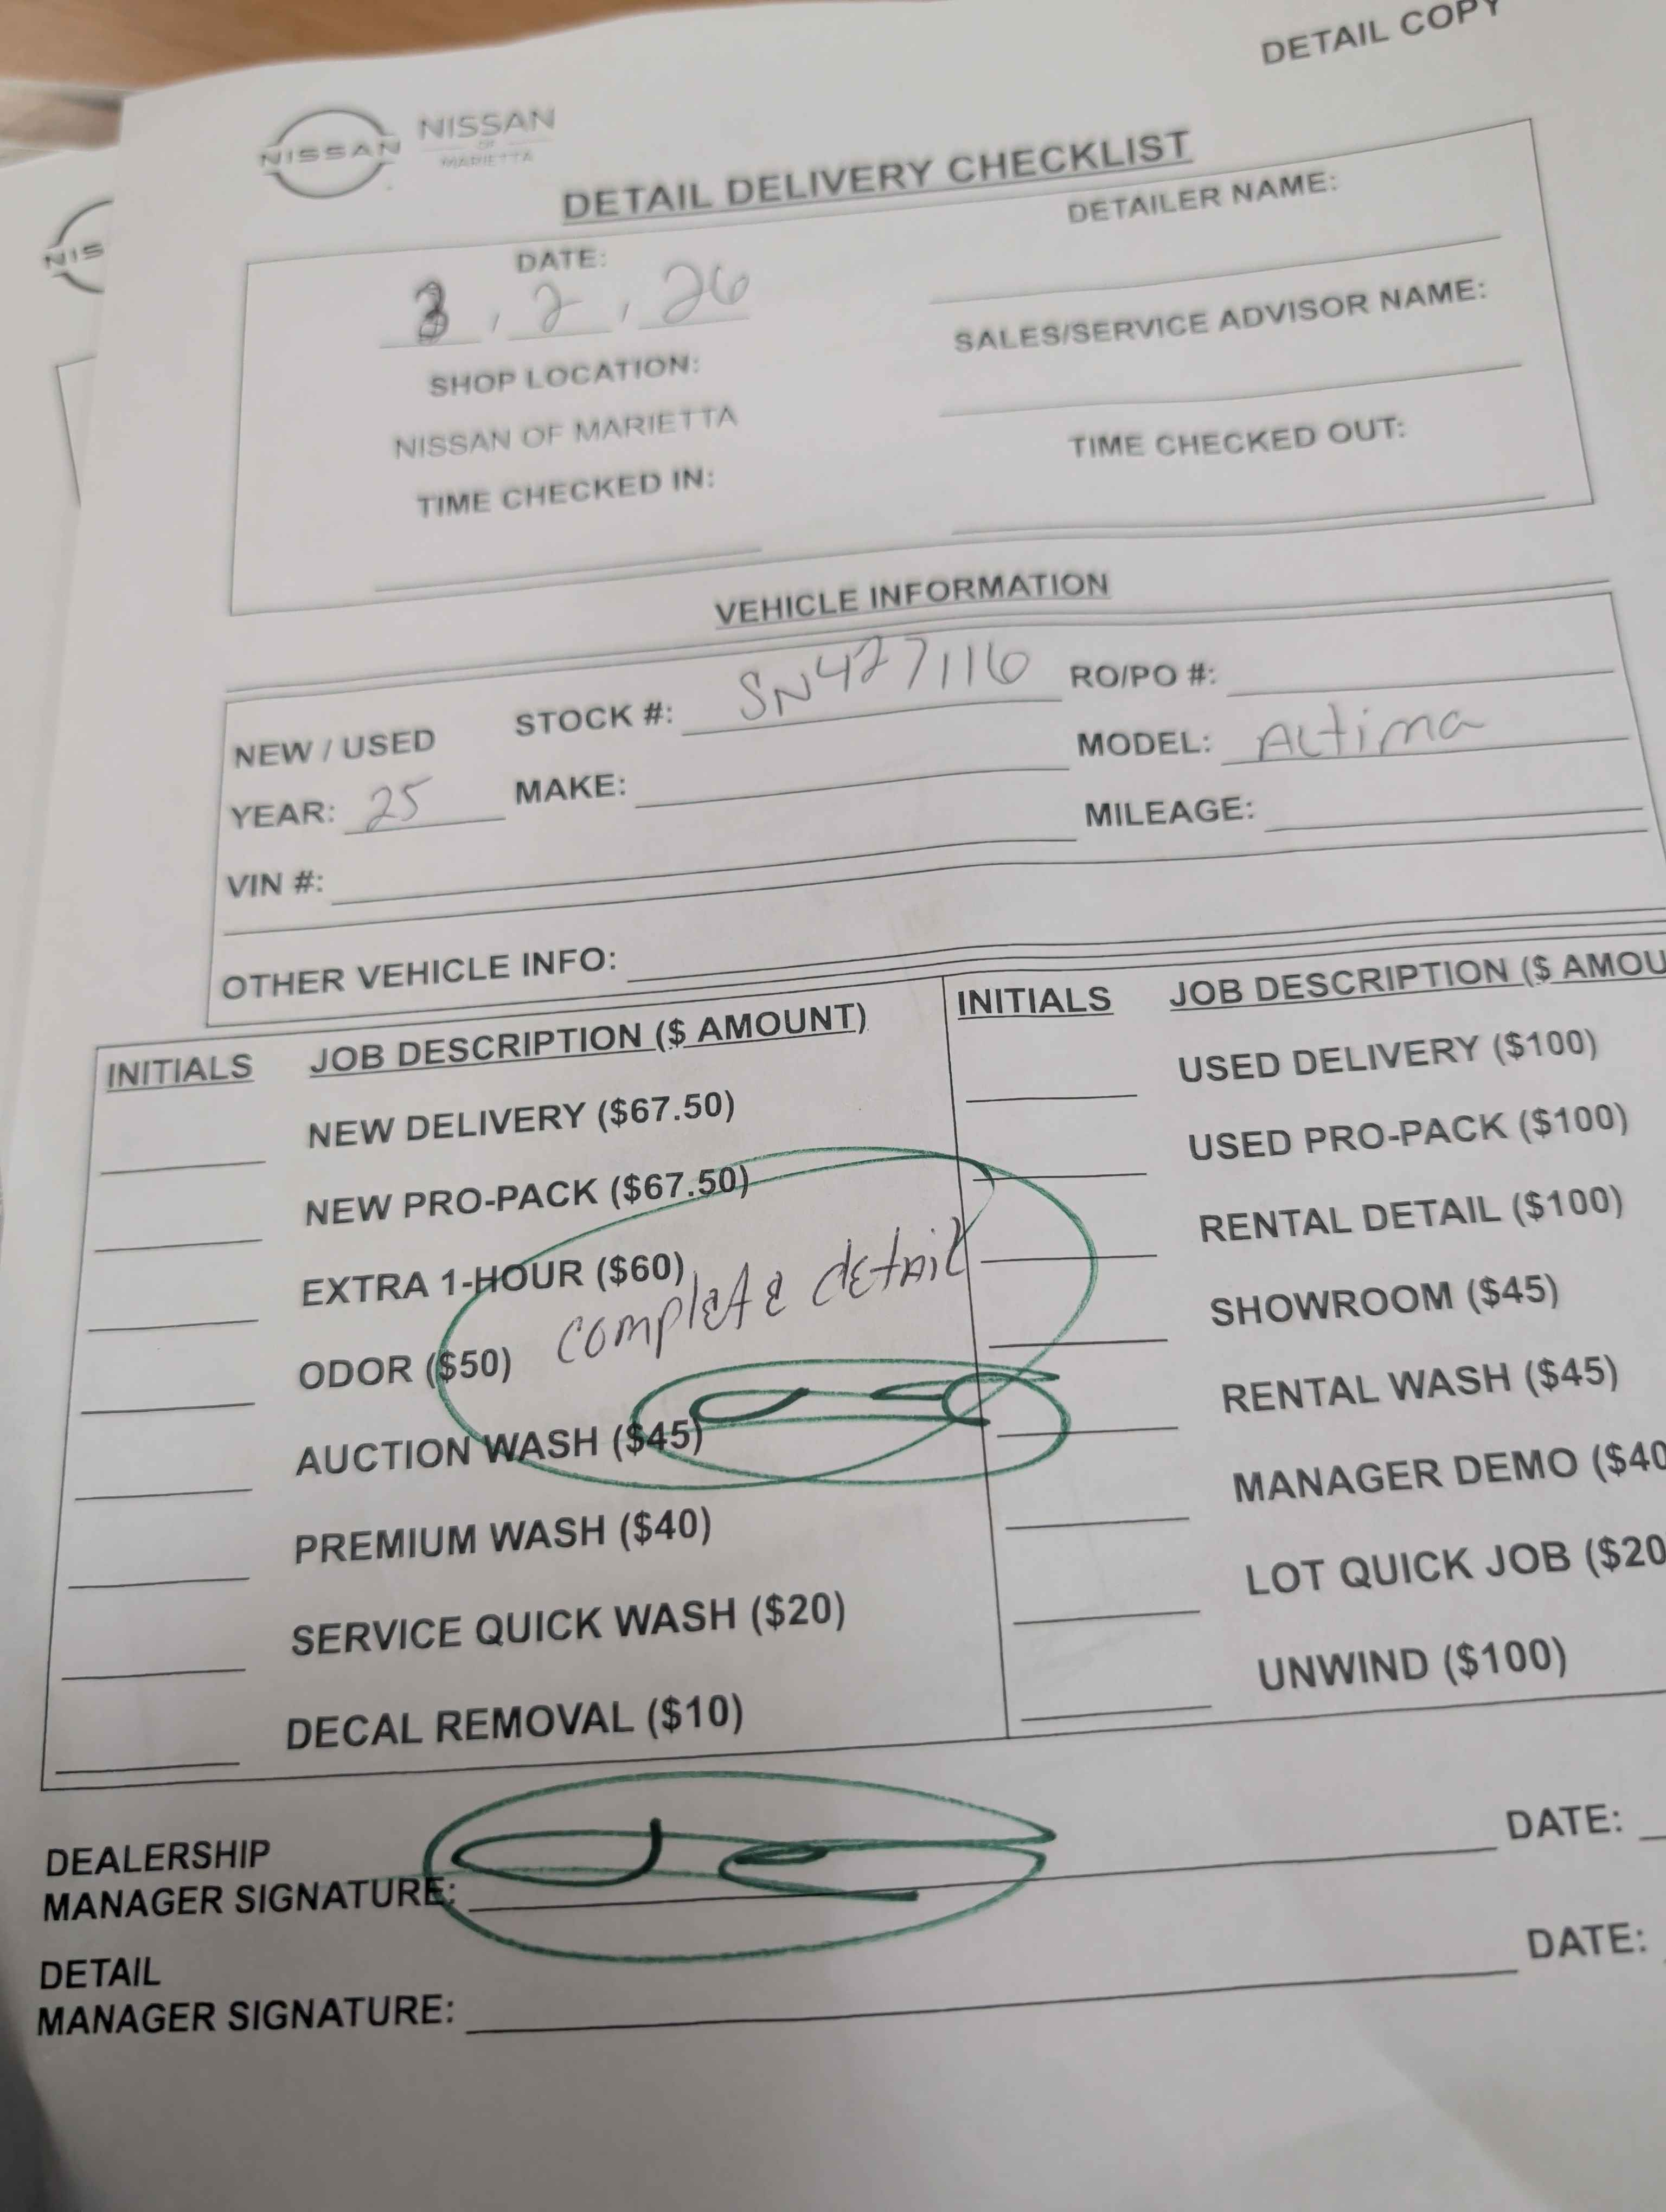 DETAIL COPY
NISSAN
NISSAN
OF
MARIETTA
NIS
DETAIL DELIVERY CHECKLIST
DATE:
3, 2, 26
DETAILER NAME:
SHOP LOCATION:
NISSAN OF MARIETTA
SALES/SERVICE ADVISOR NAME:
TIME CHECKED IN:
TIME CHECKED OUT:
VEHICLE INFORMATION
NEW / USED
STOCK #: SN427116
RO/PO #:
YEAR: 25
MAKE:
MODEL: Altima
VIN #:
MILEAGE:
OTHER VEHICLE INFO:
INITIALS JOB DESCRIPTION ($ AMOUNT)
NEW DELIVERY ($67.50)
NEW PRO-PACK ($67.50)
EXTRA 1-HOUR ($60)
complete detail
ODOR ($50)
AUCTION WASH ($45)
PREMIUM WASH ($40)
SERVICE QUICK WASH ($20)
DECAL REMOVAL ($10)
INITIALS JOB DESCRIPTION ($ AMOU
USED DELIVERY ($100)
USED PRO-PACK ($100)
RENTAL DETAIL ($100)
SHOWROOM ($45)
RENTAL WASH ($45)
MANAGER DEMO ($40
LOT QUICK JOB ($20
UNWIND ($100)
DEALERSHIP
MANAGER SIGNATURE:
DATE:
DETAIL
MANAGER SIGNATURE:
DATE: